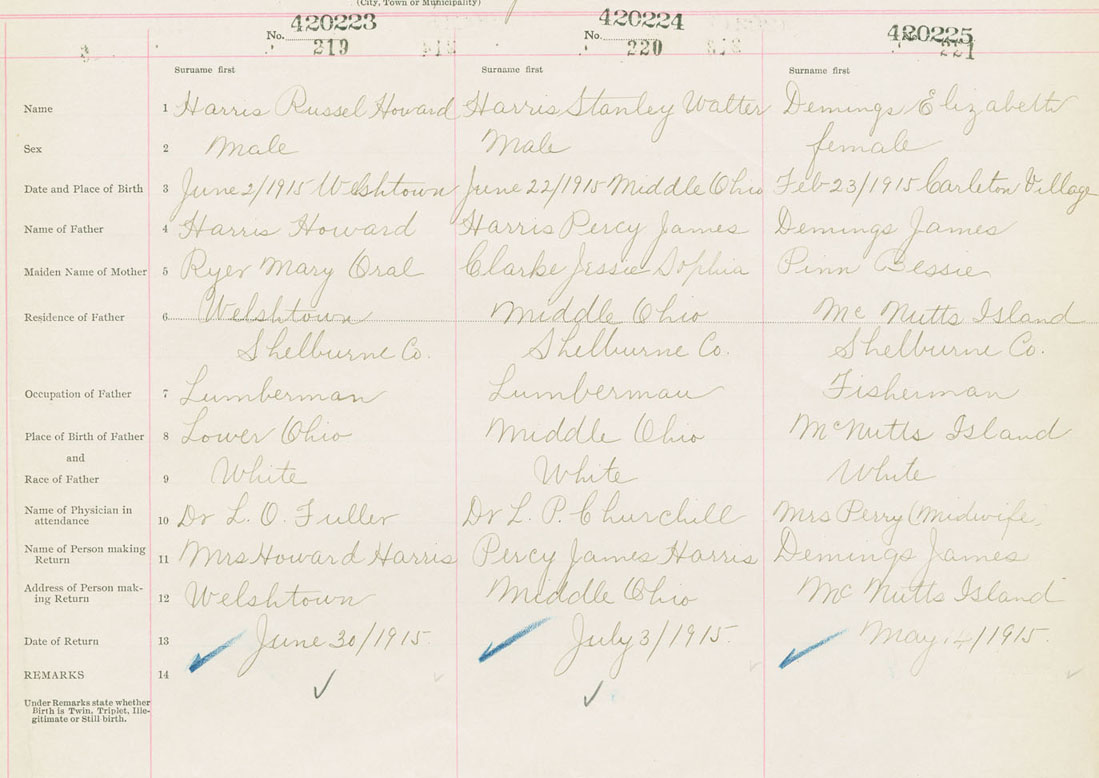 (City, Town or Municipality)
No. 420223 No. 420224 420225
219 220 221
Surname first Surname first Surname first
Name 1 Harris Russel Howard Harris Stanley Walter Demings Elizabeth
Sex 2 Male Male female
Date and Place of Birth 3 June 2/1915 Welshtown June 22/1915 Middle Ohio Feb 23/1915 Carleton Village
Name of Father 4 Harris Howard Harris Percy James Demings James
Maiden Name of Mother 5 Ryer Mary Oral Clarke Jessie Sophia Pinn Bessie
Residence of Father 6 Welshtown Middle Ohio Mc Nutts Island
Shelburne Co. Shelburne Co. Shelburne Co.
Occupation of Father 7 Lumberman Lumberman Fisherman
Place of Birth of Father 8 Lower Ohio Middle Ohio McNutts Island
and
Race of Father 9 White White White
Name of Physician in
attendance 10 Dr L. O. Fuller Dr L. P. Churchill Mrs Perry (Midwife,
Name of Person making
Return 11 Mrs Howard Harris Percy James Harris Demings James
Address of Person mak-
ing Return 12 Welshtown Middle Ohio Mc Nutts Island
Date of Return 13 June 30/1915. July 3/1915. May 14/1915.
REMARKS 14
Under Remarks state whether
Birth is Twin, Triplet, Ille-
gitimate or Still-birth.